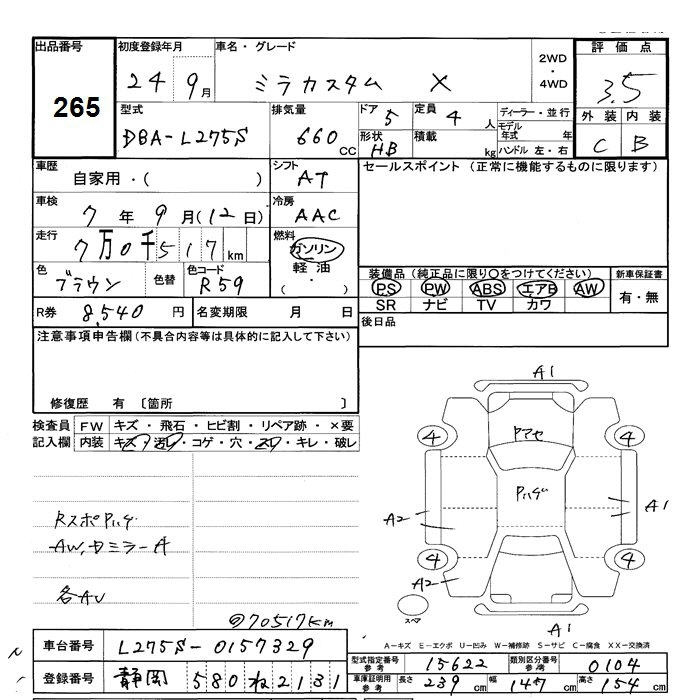 出品番号 初度登録年月 車名・グレード 2WD ・ 4WD 評価点
265 24 9月 ミラカスタム X 3.5
型式 排気量 ドア 5 定員 4人 ディーラー・並行 外装 内装
DBA-L275S 660cc 形状 HB 積載 kg モデル年式 年 C B
ハンドル 左・右
車歴 自家用・( ) シフト AT セールスポイント (正常に機能するものに限ります)
車検 7年9月(12日) 冷房 AAC
走行 7万0千517km 燃料 ガソリン
軽油
( ・ )
色 ブラウン 色替 色コード R59
装備品(純正品に限り○をつけてください) 新車保証書
PS PW ABS エアB AW 有・無
SR ナビ TV カワ
R券 8,540円 名変期限 月 日 後日品
注意事項申告欄(不具合内容等は具体的に記入して下さい)
修復歴 有 〔箇所 〕
検査員 FW キズ・飛石・ヒビ割・リペア跡・×要
記入欄 内装 キズ・汚レ・コゲ・穴・スリ・キレ・破レ
A1
4 4
Pハゲ
A2 A1
4 4
A2
スペア
A1
RスポPハゲ
AW,ドミラーA
各AU
@70517km
A-キズ E-エクボ U-凹み W-補修跡 S-サビ C-腐食 XX-交換済
車台番号 L275S-0157329 型式指定番号 参考 15622 類別区分番号 参考 0104
登録番号 静岡 580 ね 2131 車庫証明用 参考 長さ 239cm 幅 147cm 高さ 154cm